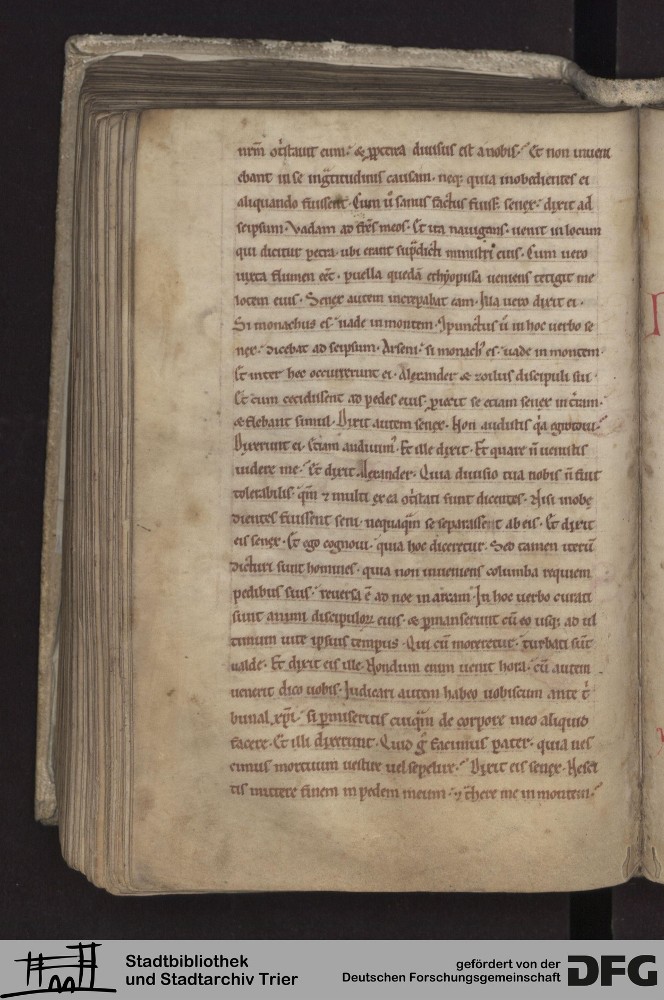 nrm̄ ꝯtristauit eum· & ꝓpterea diuisus est a nobis· Et non inueni
ebant in se ingͣtitudinis causam· neqꝫ quia inobedientes ei
aliquando fuissent· Cum ū sanus factus fuiss& senex· dixit ad
seipsum· Vadam ad fr̄s meos· Et ita nauigans· uenit in locum
qui dicitur petra· ubi erant sup̄dicti ministri eius· Cum uero
iuxta flumen eēt· puella quedā ethyopissa ueniens tetigit me
lotem eius· Senex autem increpabat eam· Illa uero dixit ei·
Si monachus es· uade in montem· Ipunctus ū in hoc uerbo se
nex· dicebat ad seipsum· Arseni· si monachꝰ es· uade in montem·
Et inter hec occurrerunt ei· Alexander & zoilus discipuli sui·
Et cum cecidissent ad pedes eius· ꝓiecit se etiam senex in t̄ram·
& flebant simul· Dixit autem senex· Non audistis qͥa egrotaui·
Dixerunt ei· Etiam audiuimꝰ· Et ille dixit· Et quare n̄ uenistis
uidere me· Et dixit Alexander· Quia diuisio tua nobis n̄ fuit
tolerabilis· qm̄ ⁊ multi ex ea ꝯtristati sunt dicentes· Nisi inobe
dientes fuissent seni· nequaqͣm se separassent ab eis· Et dixit
eis senex· Et ego cognoui· quia hoc diceretur· Sed tamen iterū
dicturi sunt homines· quia non inueniens columba requiem
pedibus suis· reuersa ē ad noe in arcam· In hoc uerbo curati
sunt animi discipuloꝝ eius· & ꝑmanserunt cū eo usqꝫ ad ul
timum uite ipsius tempus· Qui cū moreretur· turbati sūt
ualde· Et dixit eis ille· Nondum enim uenit hora· cū autem
uenerit dico uobis· Iudicari autem habeo uobiscum ante tͥ
bunal xp̄i· si ꝑmiseritis cuiqͣm de corpore meo aliquid
facere· Et illi dixerunt· Quid gͦ facimus pater· quia nes
cimus mortuum uestire uel sepelire· Dixit eis senex· Nesci
tis mittere funem in pedem meum· ⁊ tͣhere me in montem·
Stadtbibliothek
und Stadtarchiv Trier
gefördert von der
Deutschen Forschungsgemeinschaft
DFG